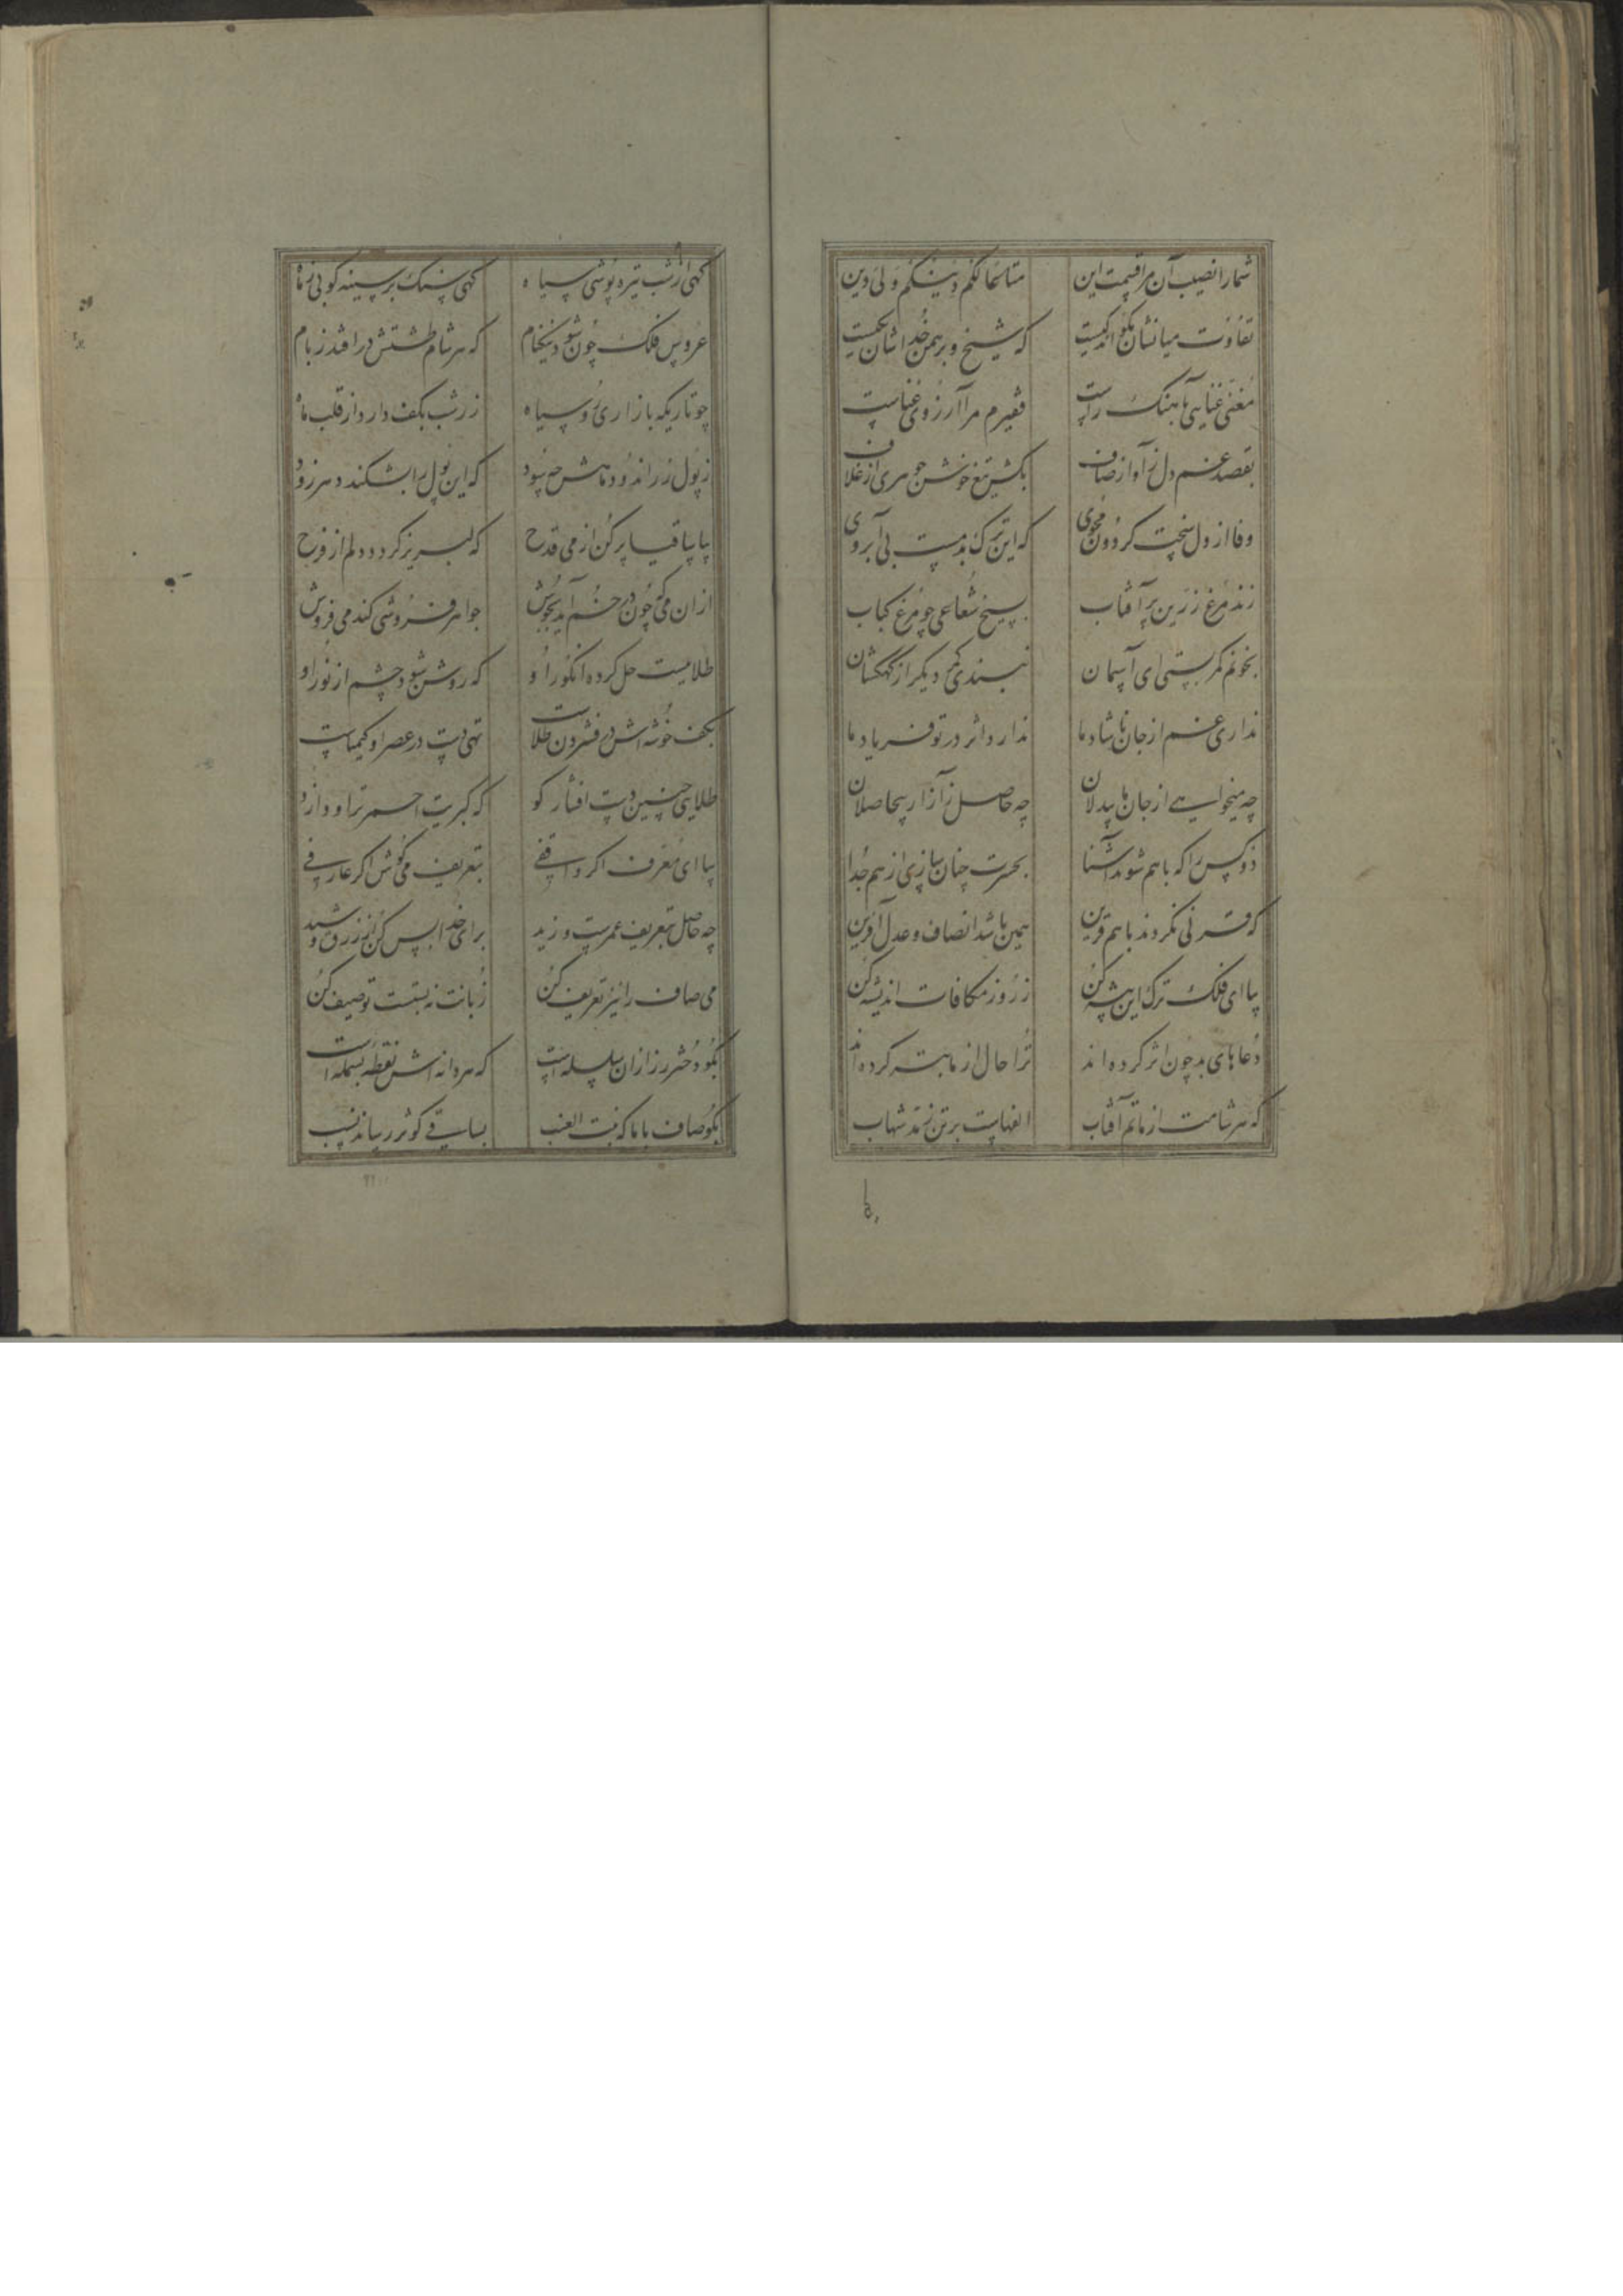 شما را نصیب آن مرا قیمت این متاعا لکم دینکم ولی دین
تفاوت میانشان بگو اندکیست که شیخ و برهمن خداشان یکیست
مغنی غنایی بآهنگ راست فقیرم مرا آرزوی غناست
بقصد غم دل ز آواز صاف بکش تیغ خوش جوهری از غلاف
وفا از دل سخت گردون مجوی که این ترک بدمست بی آبروی
زند مرغ زرین پر آفتاب بسیخ شعاعی چو مرغ کباب
بخونم کمر بستی ای آسمان نبندی کمر دیگر از کهکشان
نداری غم از جان ناشاد ما ندارد اثر در تو فریاد ما
چه میخواهی از جان ما بیدلان چه حاصل ز آزار بیحاصلان
دو کس را که باهم شوند آشنا بحسرت چنان سازی از هم جدا
که قرنی نکردند باهم قرین همین باشد انصاف و عدل آفرین
بیا ای فلک ترک این پیشه کن ز روز مکافات اندیشه کن
دعاهای بد چون اثر کرده اند ترا حال از ما بتر کرده اند
که هر شامت از ماتم آفتاب الفهاست بر تن ز مد شهاب
گهی از شب تیره پوشی سیاه گهی سنگ بر سینه کوبی ز ماه
عروس فلک چون شود نیکنام که هر شام طشتش درافتد ز بام
چو تاریکه بازاری روسیاه زر شب بکف دارد از قلب ماه
ز پول زر اندود ماهش چه سود که این پول را بشکند دهر زود
بیا ساقیا پر کن از می قدح که لبریز گردد دلم از فرح
از ان می که چون در خم آید بجوش جواهر فروشی کند می فروش
طلاییست حل کرده انگور او که روشن شود چشم از نور او
بکف خوشه اش در فشردن طلاست تهی دست در عصر او کیمیاست
طلایی چنین دست افشار کو که کبریت احمر تراود ازو
بیا ای معرف اگر واقفی بتعریف می کوش اگر عارفی
چه حاصل بتعریف عمرست و زید برای خدا بس کن از زرق و شید
می صاف را نیز تعریف کن زبانت نه بستست توصیف کن
بگو دختر رز ازان سلسله است که هر دانه اش نقطه بسمله است
بگو صاف با ما که بنت العنب بساقی کوثر رساند نسب